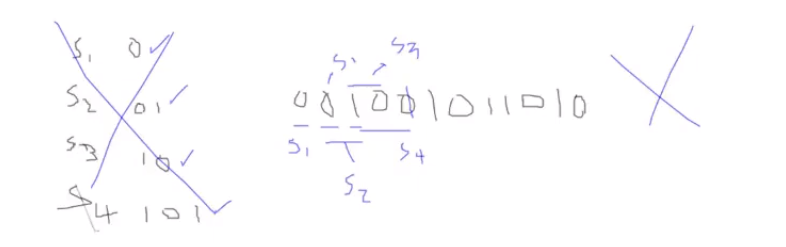 S1 0
S2 01
S3 10
S4 101
S1 S3
001001011010
S1 S4
S2